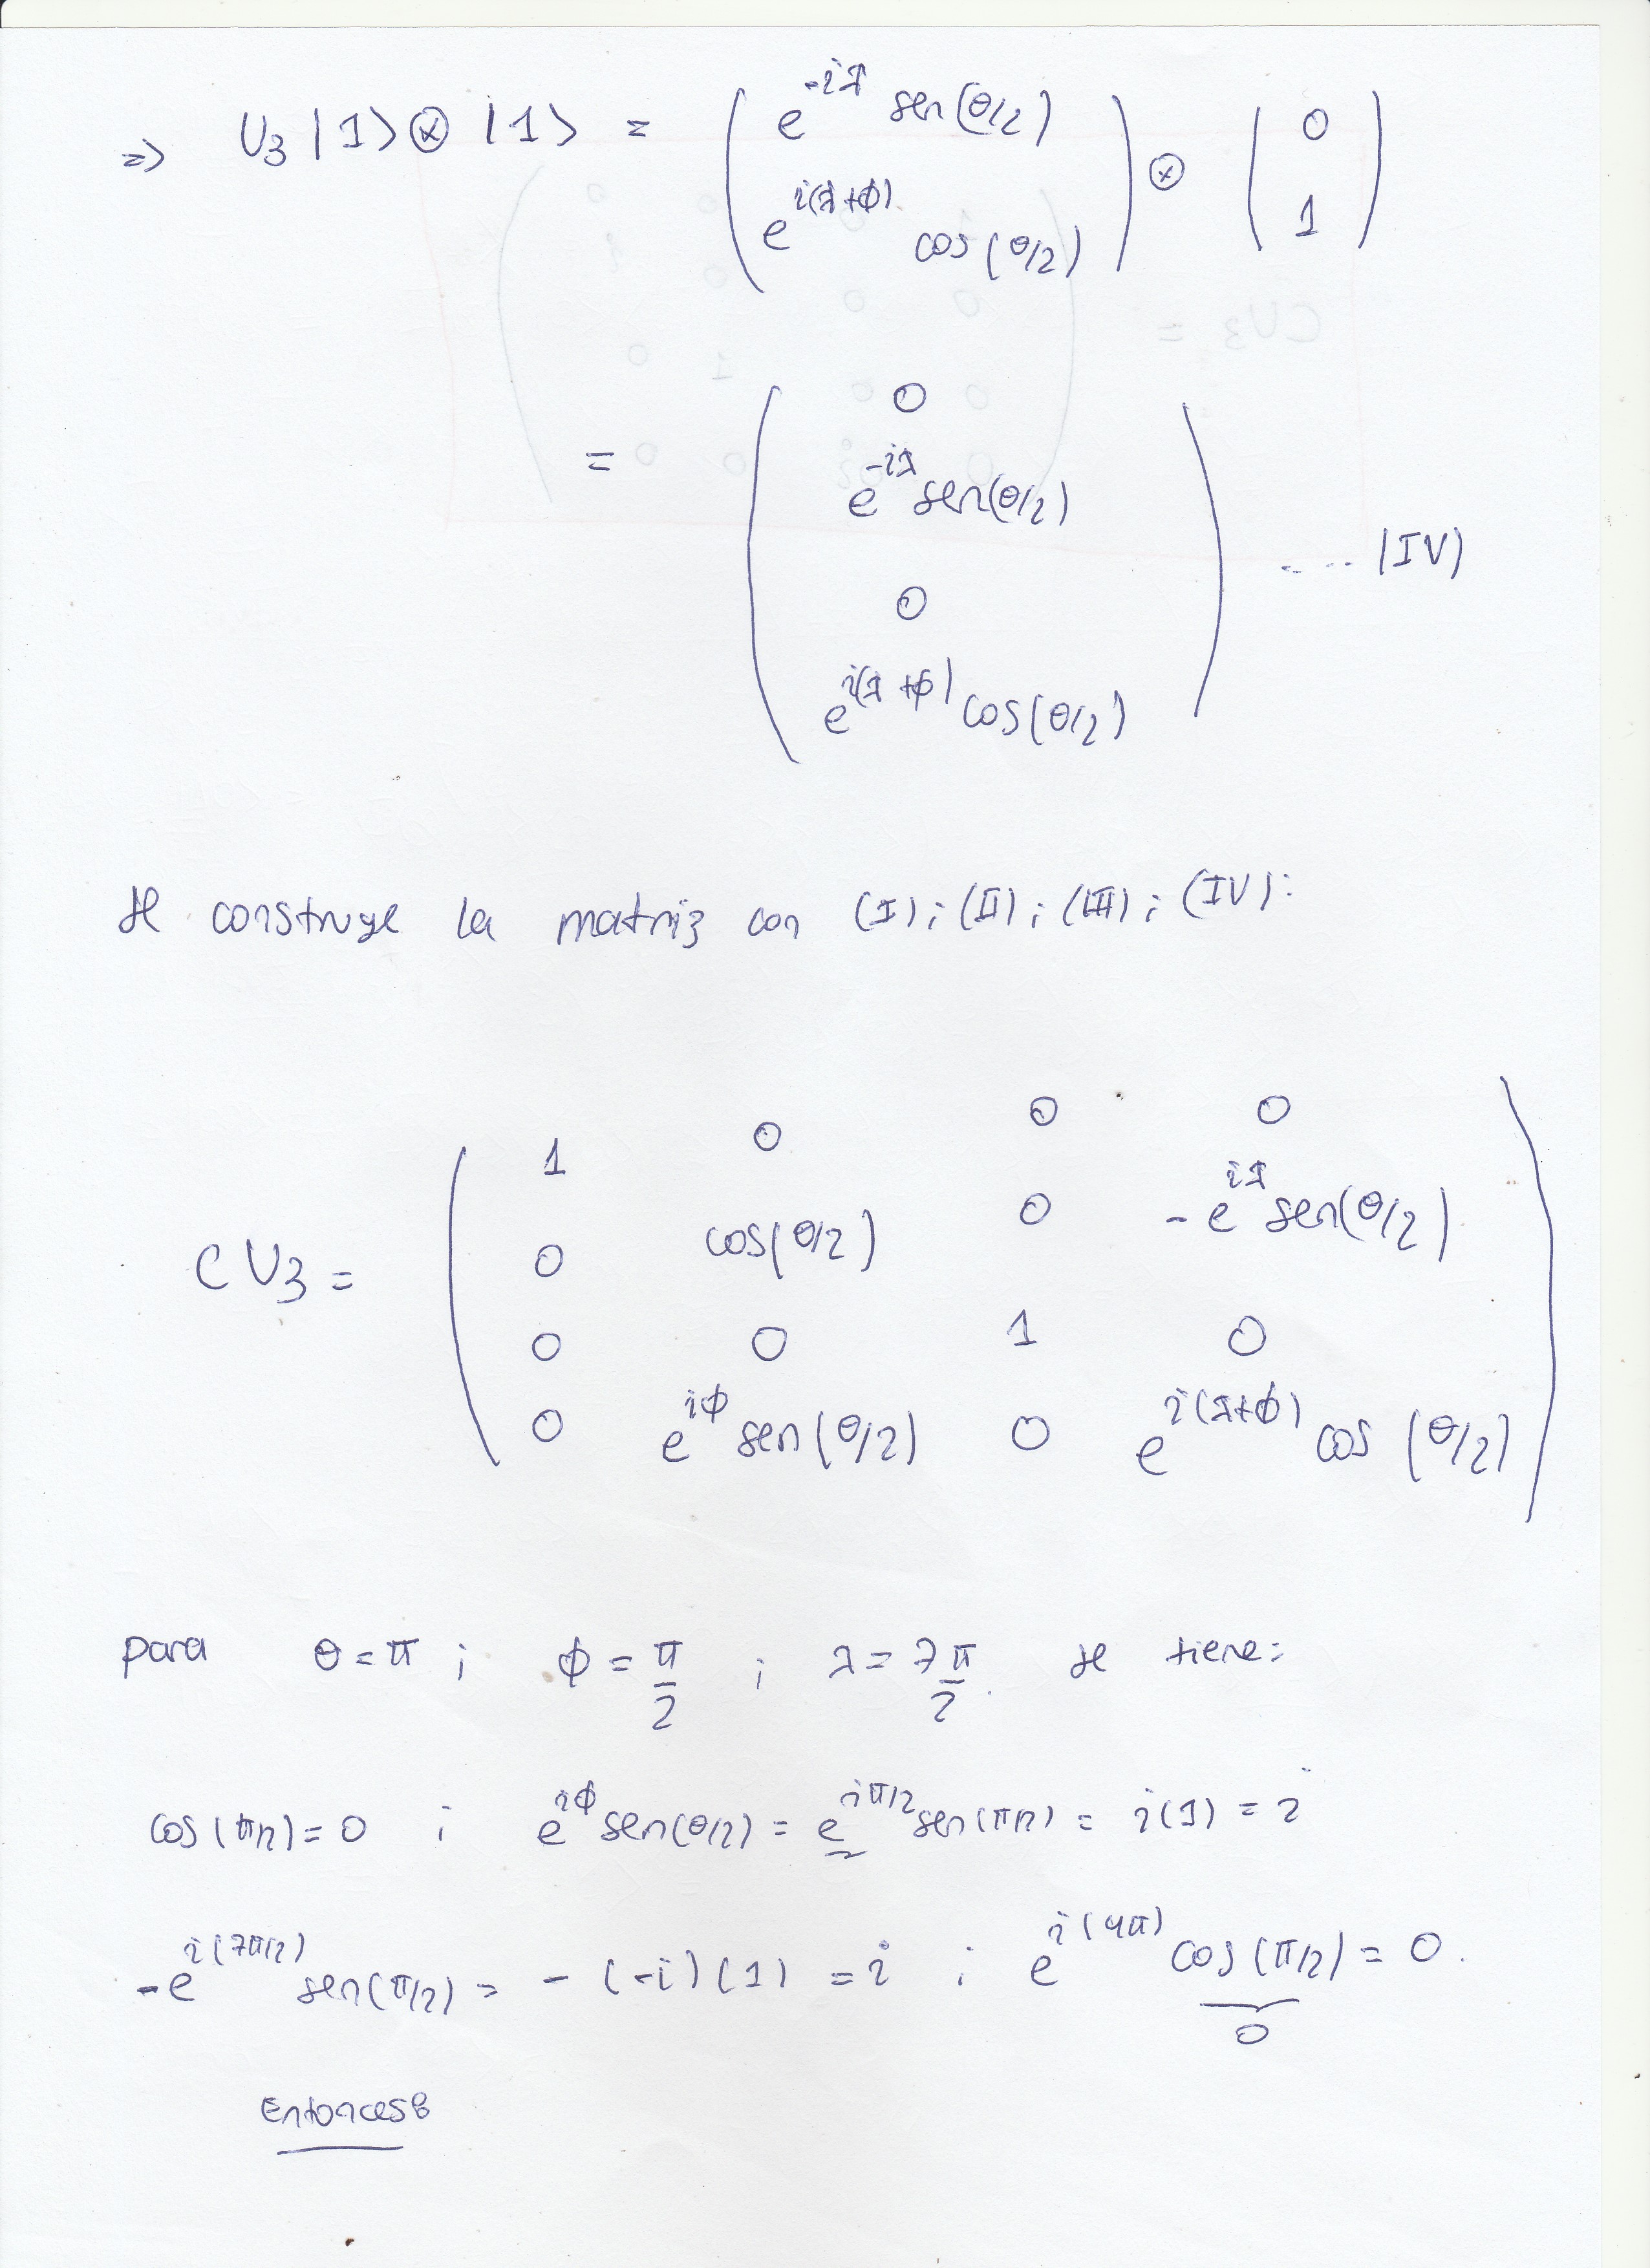 => U3 |1> ⊗ |1> = ( e^{-iλ} sen(θ/2) ; e^{i(λ+φ)} cos(θ/2) ) ⊗ ( 0 ; 1 )
= ( 0 ; e^{-iλ} sen(θ/2) ; 0 ; e^{i(λ+φ)} cos(θ/2) ) .... (IV)
se construye la matriz con (I) ; (II) ; (III) ; (IV) :
CU3 = ( 1 0 0 0
0 cos(θ/2) 0 -e^{iλ} sen(θ/2)
0 0 1 0
0 e^{iφ} sen(θ/2) 0 e^{i(λ+φ)} cos(θ/2) )
para θ = π ; φ = π/2 ; λ = 7π/2 . se tiene:
cos(π/2) = 0 ; e^{iφ} sen(θ/2) = e^{iπ/2} sen(π/2) = i(1) = i
-e^{i(7π/2)} sen(π/2) = - (-i) (1) = i ; e^{i(4π)} cos(π/2) = 0 .
0
Entonces: